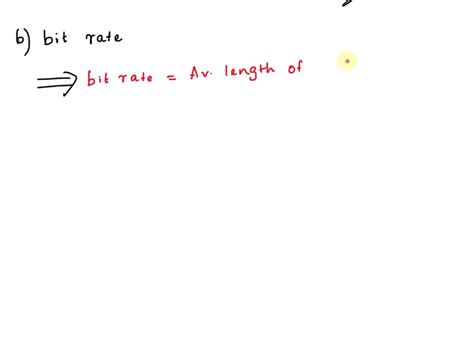 b) bit rate
⟹ bit rate = Av. length of